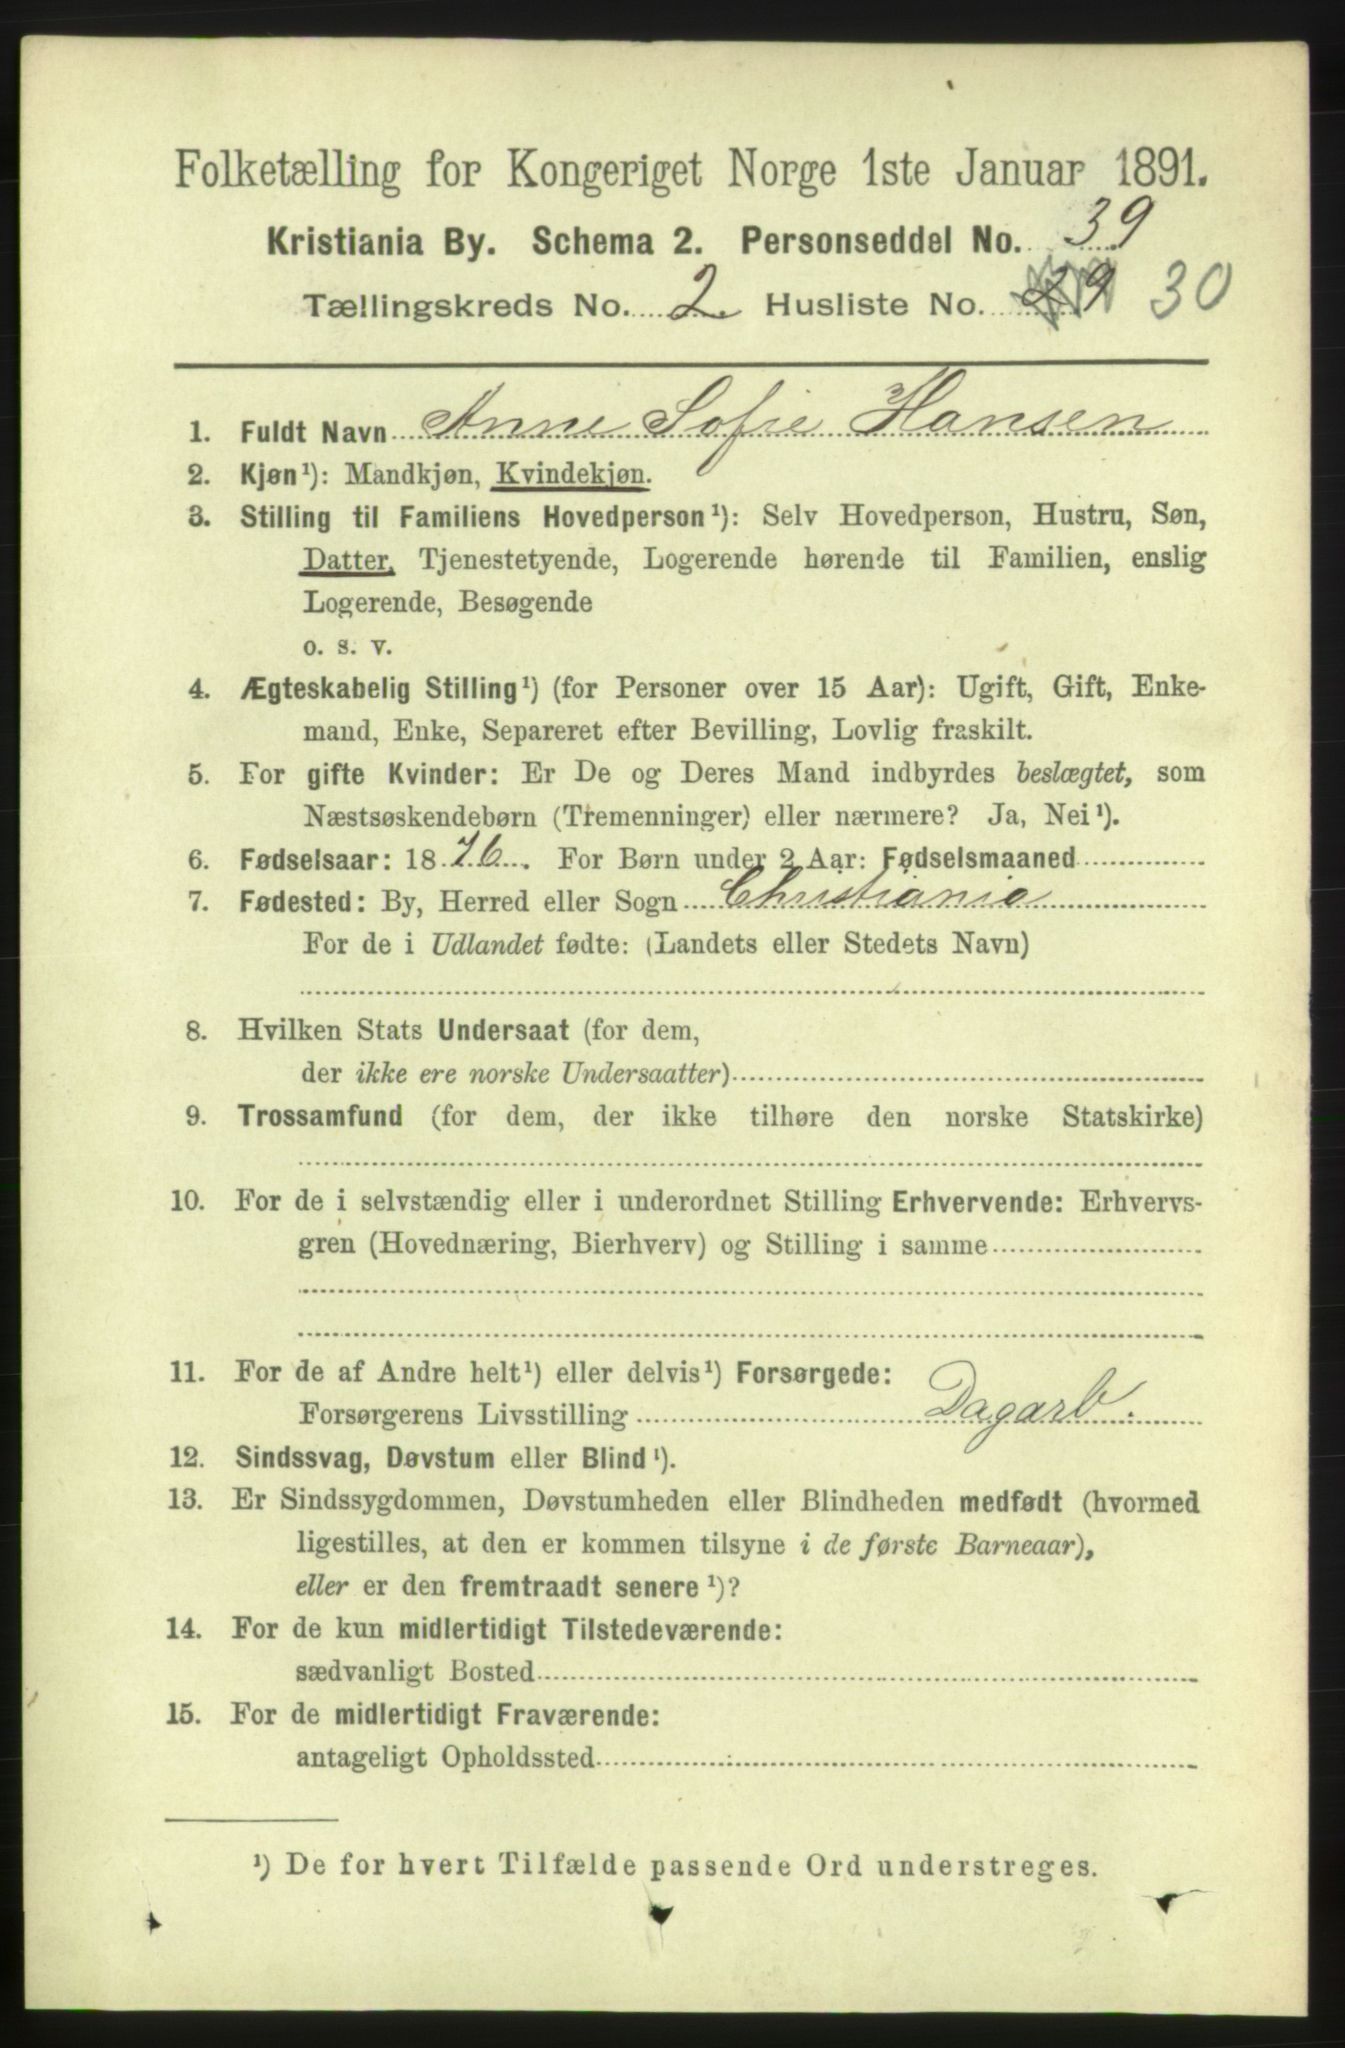 Folketælling for Kongeriget Norge 1ste Januar 1891.
Kristiania By. Schema 2. Personseddel No. 39
Tællingskreds No. 2 Husliste No. 29 30
1. Fuldt Navn Anne Sofie Hansen
2. Kjøn¹): Mandkjøn, Kvindekjøn.
3. Stilling til Familiens Hovedperson¹): Selv Hovedperson, Hustru, Søn,
Datter, Tjenestetyende, Logerende hørende til Familien, enslig
Logerende, Besøgende
o. s. v.
4. Ægteskabelig Stilling¹) (for Personer over 15 Aar): Ugift, Gift, Enke-
mand, Enke, Separeret efter Bevilling, Lovlig fraskilt.
5. For gifte Kvinder: Er De og Deres Mand indbyrdes beslægtet, som
Næstsøskendebørn (Tremenninger) eller nærmere? Ja, Nei¹).
6. Fødselsaar: 1876. For Børn under 2 Aar: Fødselsmaaned
7. Fødested: By, Herred eller Sogn Christiania
For de i Udlandet fødte: (Landets eller Stedets Navn)
8. Hvilken Stats Undersaat (for dem,
der ikke ere norske Undersaatter)
9. Trossamfund (for dem, der ikke tilhøre den norske Statskirke)
10. For de i selvstændig eller i underordnet Stilling Erhvervende: Erhvervs-
gren (Hovednæring, Bierhverv) og Stilling i samme
11. For de af Andre helt¹) eller delvis¹) Forsørgede:
Forsørgerens Livsstilling Dagarb.
12. Sindssvag, Døvstum eller Blind¹).
13. Er Sindssygdommen, Døvstumheden eller Blindheden medfødt (hvormed
ligestilles, at den er kommen tilsyne i de første Barneaar),
eller er den fremtraadt senere¹)?
14. For de kun midlertidigt Tilstedeværende:
sædvanligt Bosted
15. For de midlertidigt Fraværende:
antageligt Opholdssted
¹) De for hvert Tilfælde passende Ord understreges.